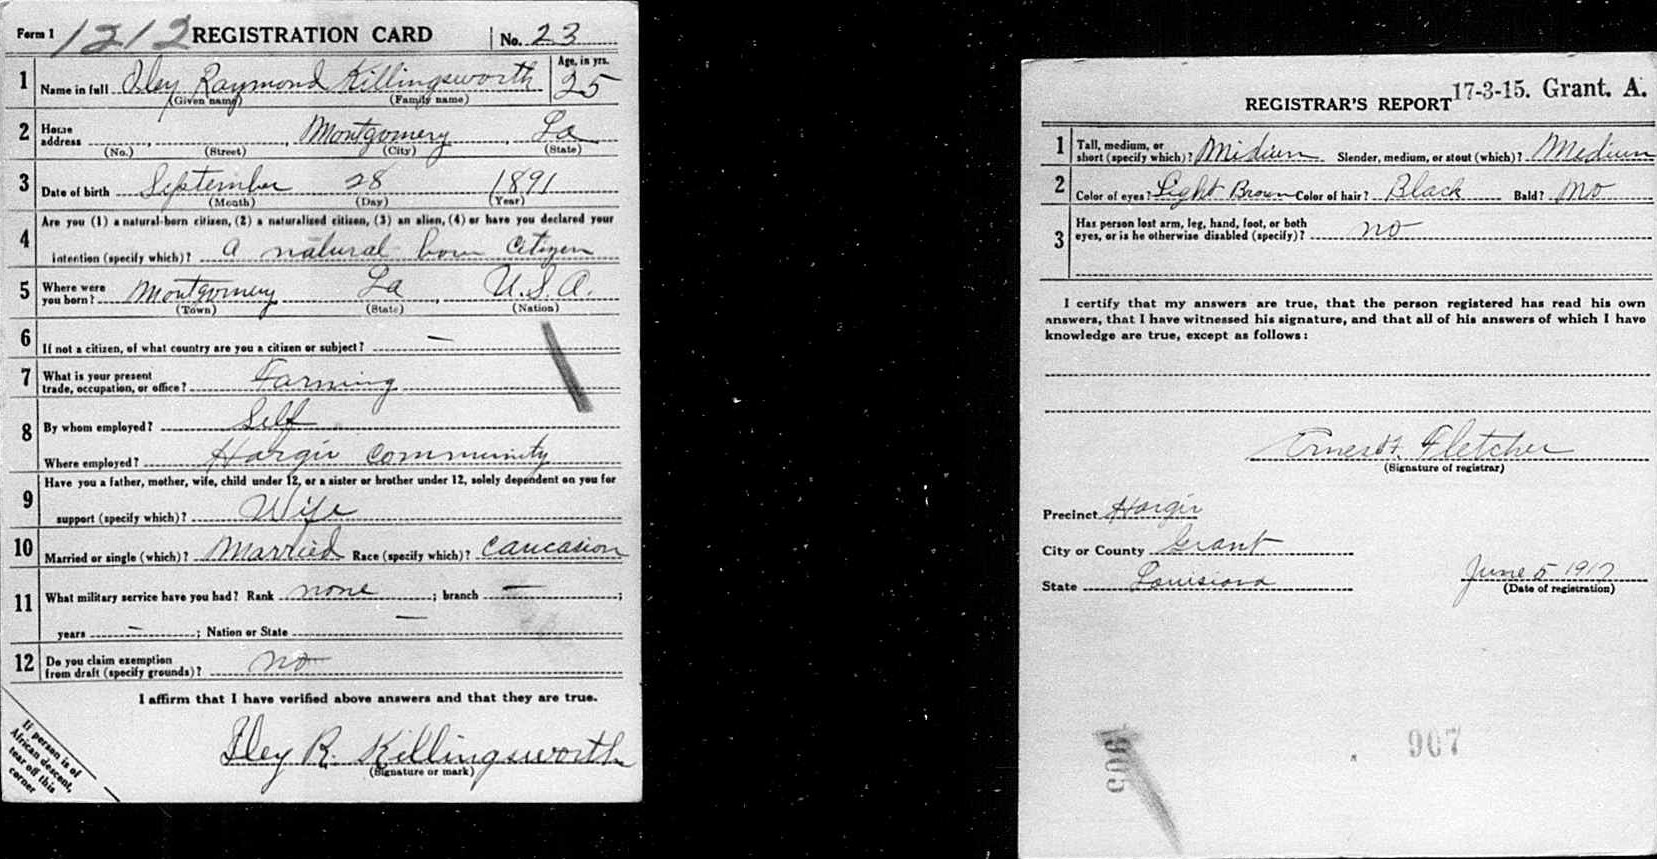 Form 1 1212 REGISTRATION CARD No. 23
1 Name in full Iley Raymond Killingsworth Age, in yrs. 25
(Given name) (Family name)
2 Home address Montgomery La
(No.) (Street) (City) (State)
3 Date of birth September 28 1891
(Month) (Day) (Year)
4 Are you (1) a natural-born citizen, (2) a naturalized citizen, (3) an alien, (4) or have you declared your
intention (specify which)? a natural born citizen
5 Where were you born? Montgomery La U.S.A.
(Town) (State) (Nation)
6 If not a citizen, of what country are you a citizen or subject? —
7 What is your present
trade, occupation, or office? Farming
8 By whom employed? Self
Where employed? Hargis Community
9 Have you a father, mother, wife, child under 12, or a sister or brother under 12, solely dependent on you for
support (specify which)? Wife
10 Married or single (which)? Married Race (specify which)? Caucasion
11 What military service have you had? Rank none ; branch — ;
years — ; Nation or State —
12 Do you claim exemption
from draft (specify grounds)? no
I affirm that I have verified above answers and that they are true.
Iley R. Killingsworth
(Signature or mark)
If person is of
African descent,
tear off this
corner
17-3-15. Grant. A.
REGISTRAR'S REPORT
1 Tall, medium, or
short (specify which)? Midium Slender, medium, or stout (which)? Medium
2 Color of eyes? Light Brown Color of hair? Black Bald? no
3 Has person lost arm, leg, hand, foot, or both
eyes, or is he otherwise disabled (specify)? no
I certify that my answers are true, that the person registered has read his own
answers, that I have witnessed his signature, and that all of his answers of which I have
knowledge are true, except as follows:
Fletcher
(Signature of registrar)
Precinct Hargis
City or County Grant
State Louisiana
June 5 1917
(Date of registration)
905
907